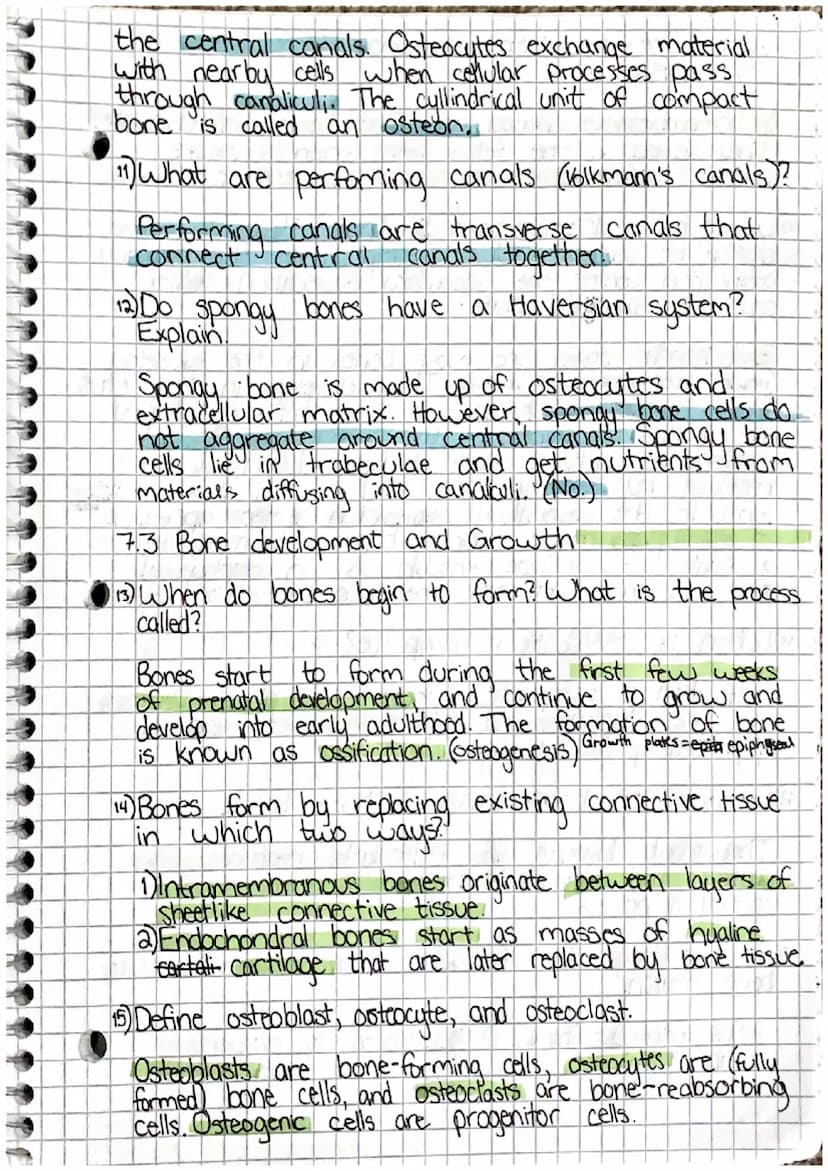 the central canals. Osteocytes exchange material
with nearby cells when cellular processes pass
through canaliculi. The cyllindrical unit of compact
bone is called an osteon.
11) What are perfoming canals (Volkmann's canals)?
Performing canals are transverse canals that
connect central canals together.
12) Do spongy bones have a Haversian system?
Explain.
Spongy bone is made up of osteocytes and
extracellular matrix. However, spongy bone cells do
not aggregate around central canals. Spongy bone
cells lie in trabeculae and get nutrients from
materials diffusing into canaliculi. (No.)
7.3 Bone development and Growth
13) When do bones begin to form? What is the process
called?
Bones start to form during the first few weeks
of prenatal development, and continue to grow and
develop into early adulthood. The formation of bone
is known as ossification. (osteogenesis) Growth plates = epiphyseal
14) Bones form by replacing existing connective tissue
in which two ways?
1) Intramembranous bones originate between layers of
sheetlike connective tissue.
2) Endochondral bones start as masses of hyaline
cartali cartilage that are later replaced by bone tissue
15) Define osteoblast, osteocyte, and osteoclast.
Osteoblasts are bone-forming cells, osteocytes are (fully
formed) bone cells, and osteoclasts are bone-reabsorbing
cells. Osteogenic cells are progenitor cells.